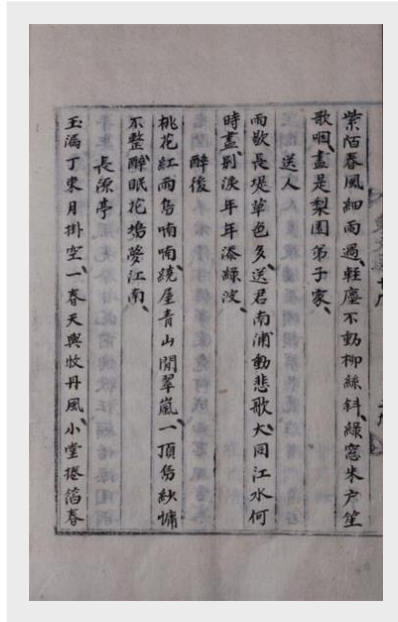 紫陌春風細雨過輕塵不動柳絲斜綠窓朱戶笙
歌咽盡是梨園弟子家
送人
雨歇長堤草色多送君南浦動悲歌大同江水何
時盡別淚年年添綠波
醉後
桃花紅雨鳥喃喃繞屋青山閒翠嵐一頂烏紗慵
不整醉眠花塢夢江南
長源亭
玉漏丁東月掛空一春天與牧丹風小堂捲箔春